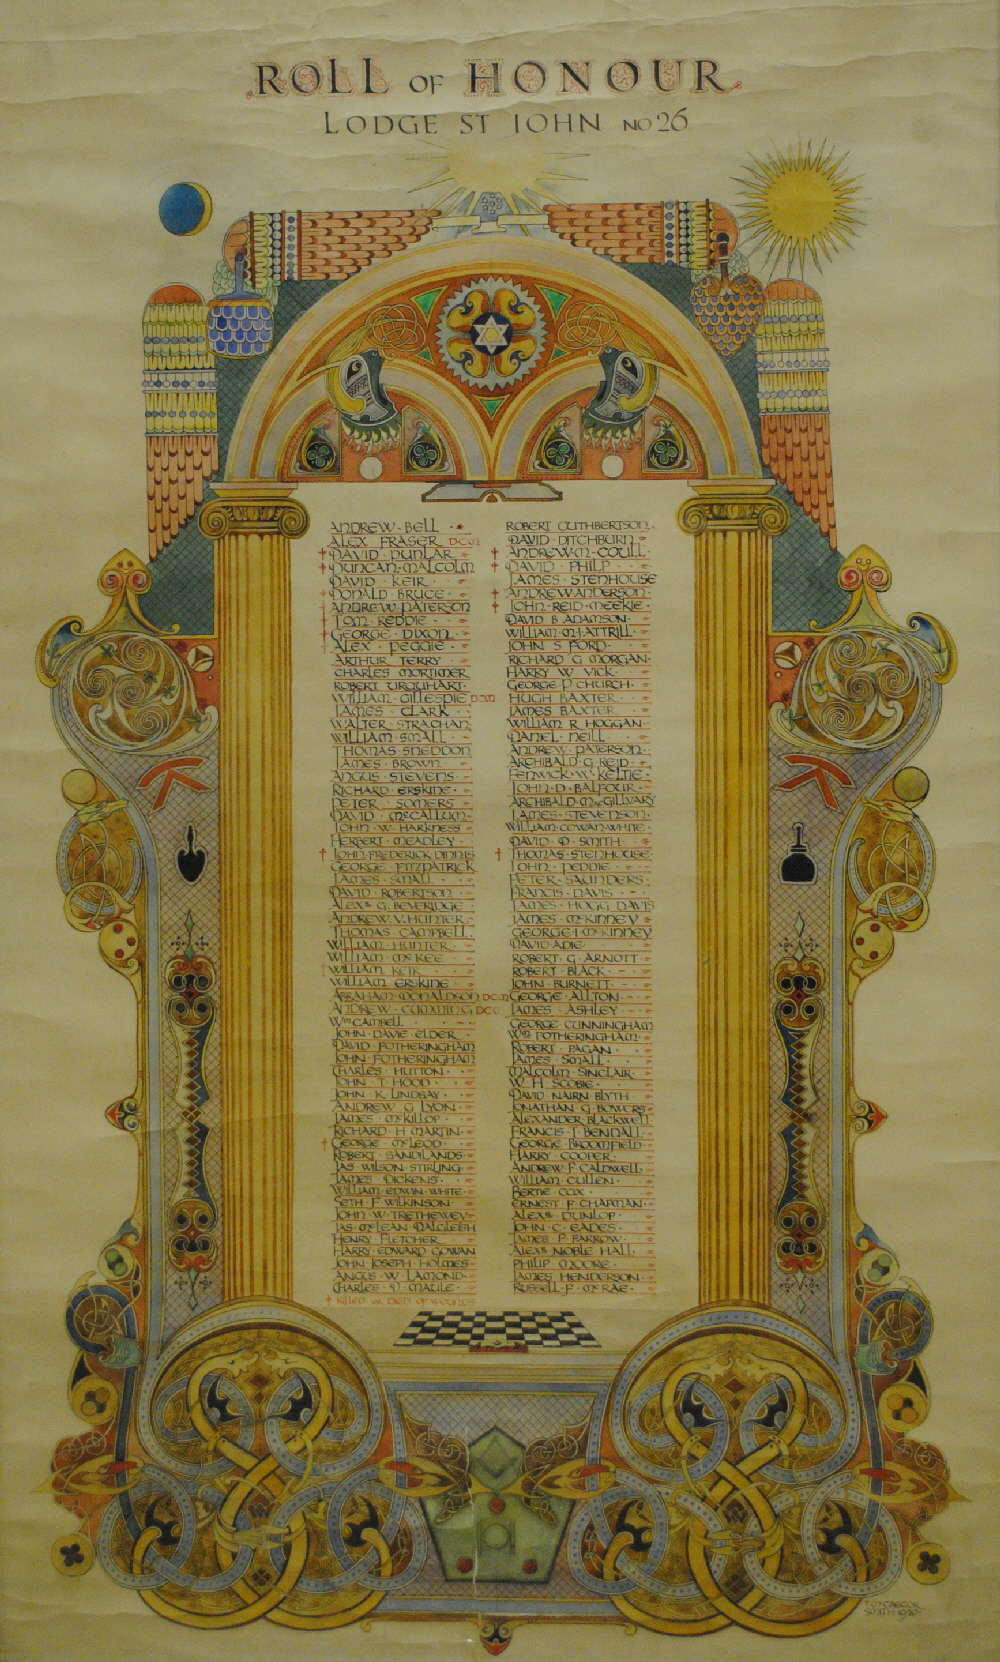 ROLL OF HONOUR
LODGE ST JOHN NO 26
ANDREW · BELL
ALEX FRASER DCM
† DAVID · DUNLAR
† DUNCAN · MALCOLM
DAVID · KEIR
DONALD BRUCE
ANDREW · PATERSON
TOM · REDDIE
GEORGE · DIXON
ALEX · PEGGIE
ARTHUR TERRY
CHARLES MORTIMER
ROBERT URQUHART
WILLIAM · GILLESPIE DCM
JAMES · CLARK
WALTER · STRACHAN
WILLIAM · SMALL
THOMAS · SNEDDON
JAMES · BROWN
ANGUS · STEVENS
RICHARD ERSKINE
PETER · SOMERS
DAVID · McCALLUM
JOHN · W · HARKNESS
HERBERT · MEADLEY
† JOHN · FREDERICK DINNIS
GEORGE · FITZPATRICK
JAMES · SMALL
DAVID · ROBERTSON
ALEXR G. BEVERIDGE
ANDREW. V. HUNTER
THOMAS · CAMPBELL
WILLIAM · HUNTER
WILLIAM · McKEE
WILLIAM · KEIR
WILLIAM ERSKINE
ABRAHAM · DONALDSON DCM
ANDREW · CUMMING DCM
WM CAMPBELL
JOHN · DAVIE · ELDER
DAVID · FOTHERINGHAM
JOHN · FOTHERINGHAM
CHARLES HUTTON
JOHN · T · HOOD
JOHN · K · LINDSAY
ANDREW G LYON
JAMES · McKILLOP
RICHARD · H · MARTIN
† GEORGE · McLEOD
ROBERT · SANDILANDS
JAS · WILSON · STIRLING
JAMES · DICKENS
WILLIAM · EDWIN · WHITE
SETH · F · WILKINSON
JOHN · W · TRETHEWEY
JAS · McLEAN DALGLEISH
HENRY · FLETCHER
HARRY · EDWARD GOWAN
JOHN JOSEPH · HOLMES
ANGUS · W · LAMOND
CHARLES · D · MAULE
† KILLED OR DIED OF WOUNDS
ROBERT CUTHBERTSON
DAVID · DITCHBURN
† ANDREW · N · COULL
† DAVID · PHILP
JAMES · STENHOUSE
† ANDREW · ANDERSON
† JOHN · REID · MEEKIE
DAVID B ADAMSON
WILLIAM · M · J · ATTRILL
JOHN S FORD
RICHARD G MORGAN
HARRY W VICK
GEORGE · P · CHURCH
HUGH BAXTER
JAMES BAXTER
WILLIAM R HOGGAN
DANIEL · NEILL
ANDREW · PATERSON
ARCHIBALD · G · REID
FENWICK · W · KELTIE
JOHN · D · BALFOUR
ARCHIBALD · McGILVARY
JAMES · STEVENSON
WILLIAM · COWAN · WHITE
DAVID · D · SMITH
† THOMAS · STENHOUSE
JOHN · PEDDIE
PETER · SAUNDERS
FRANCIS · DAVIS
JAMES · HOGG DAVIS
JAMES · McKINNEY
GEORGE · I · McKINNEY
DAVID · ADIE
ROBERT · G · ARNOTT
ROBERT · BLACK
JOHN · BURNETT
GEORGE · ALLTON
JAMES · ASHLEY
GEORGE CUNNINGHAM
WM FOTHERINGHAM
ROBERT · PAGAN
JAMES · SMALL
MALCOLM · SINCLAIR
W · H · SCOBIE
DAVID NAIRN BLYTH
JONATHAN · G · BOWERS
ALEXANDER · BLACKWELL
FRANCIS · T · BENDALL
GEORGE BROOMFIELD
HARRY · COOPER
ANDREW F CALDWELL
WILLIAM CULLEN
BERTIE · COX
ERNEST F CHAPMAN
ALEXR · DUNLOP
JOHN · C · EADES
JAMES · P · FARROW
ALEXR NOBLE HALL
PHILIP MOORE
JAMES · HENDERSON
RUSSELL · F · McRAE
SMITH · 1920